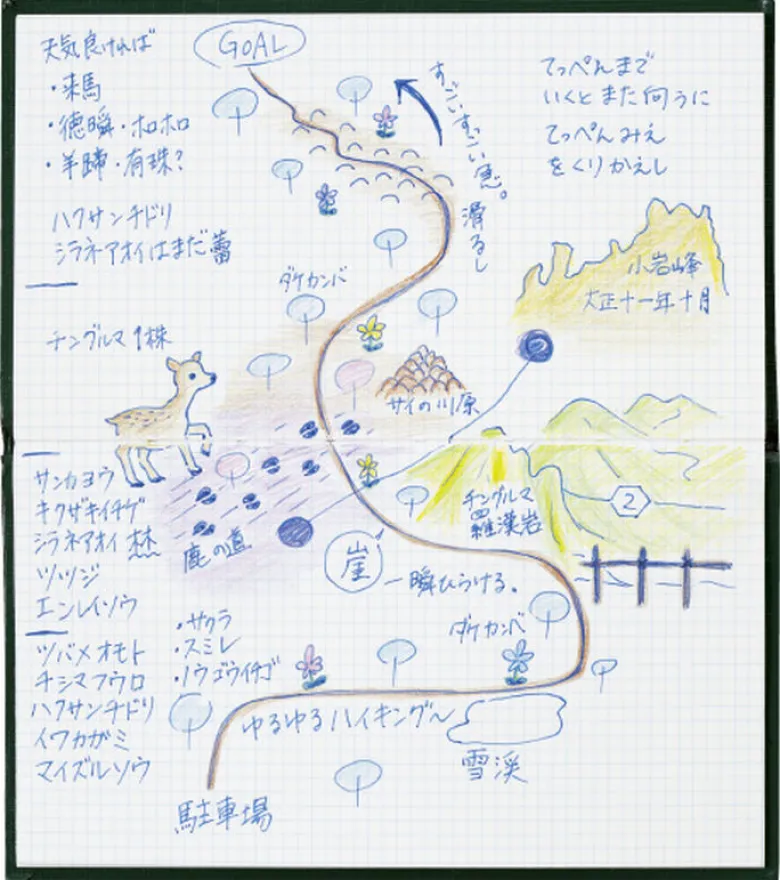 天気良ければ
・来馬
・徳瞬・ホロホロ
・羊蹄・有珠?
ハクサンチドリ
シラネアオイはまだ蕾
チングルマ1株
サンカヨウ
キクザキイチゲ
シラネアオイ 林
ツツジ
エンレイソウ
ツバメオモト
チシマフウロ
ハクサンチドリ
イワカガミ
マイズルソウ
GOAL
すごいすっごい急。
滑るし
てっぺんまで
いくとまた向うに
てっぺんみえ
をくりかえし
小岩峰
大正十一年十月
ダケカンバ
サイの川原
鹿の道
チングルマ
羅漢岩
2
崖
一瞬ひらける。
ダケカンバ
・サクラ
・スミレ
・ノウゴウイチゴ
ゆるゆるハイキング〜
雪渓
駐車場